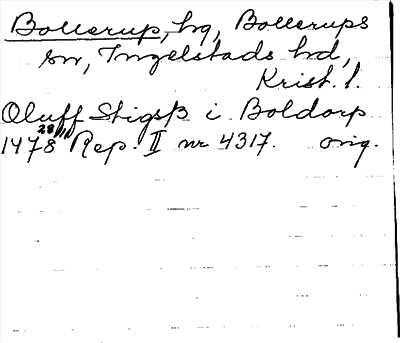 Bollerup, hg, Bollerups
sn, Ingelstads hd,
Krist. l.
Oluff Stigsß i Boldorp
1478 28/11 Rep. II nr 4317. orig.